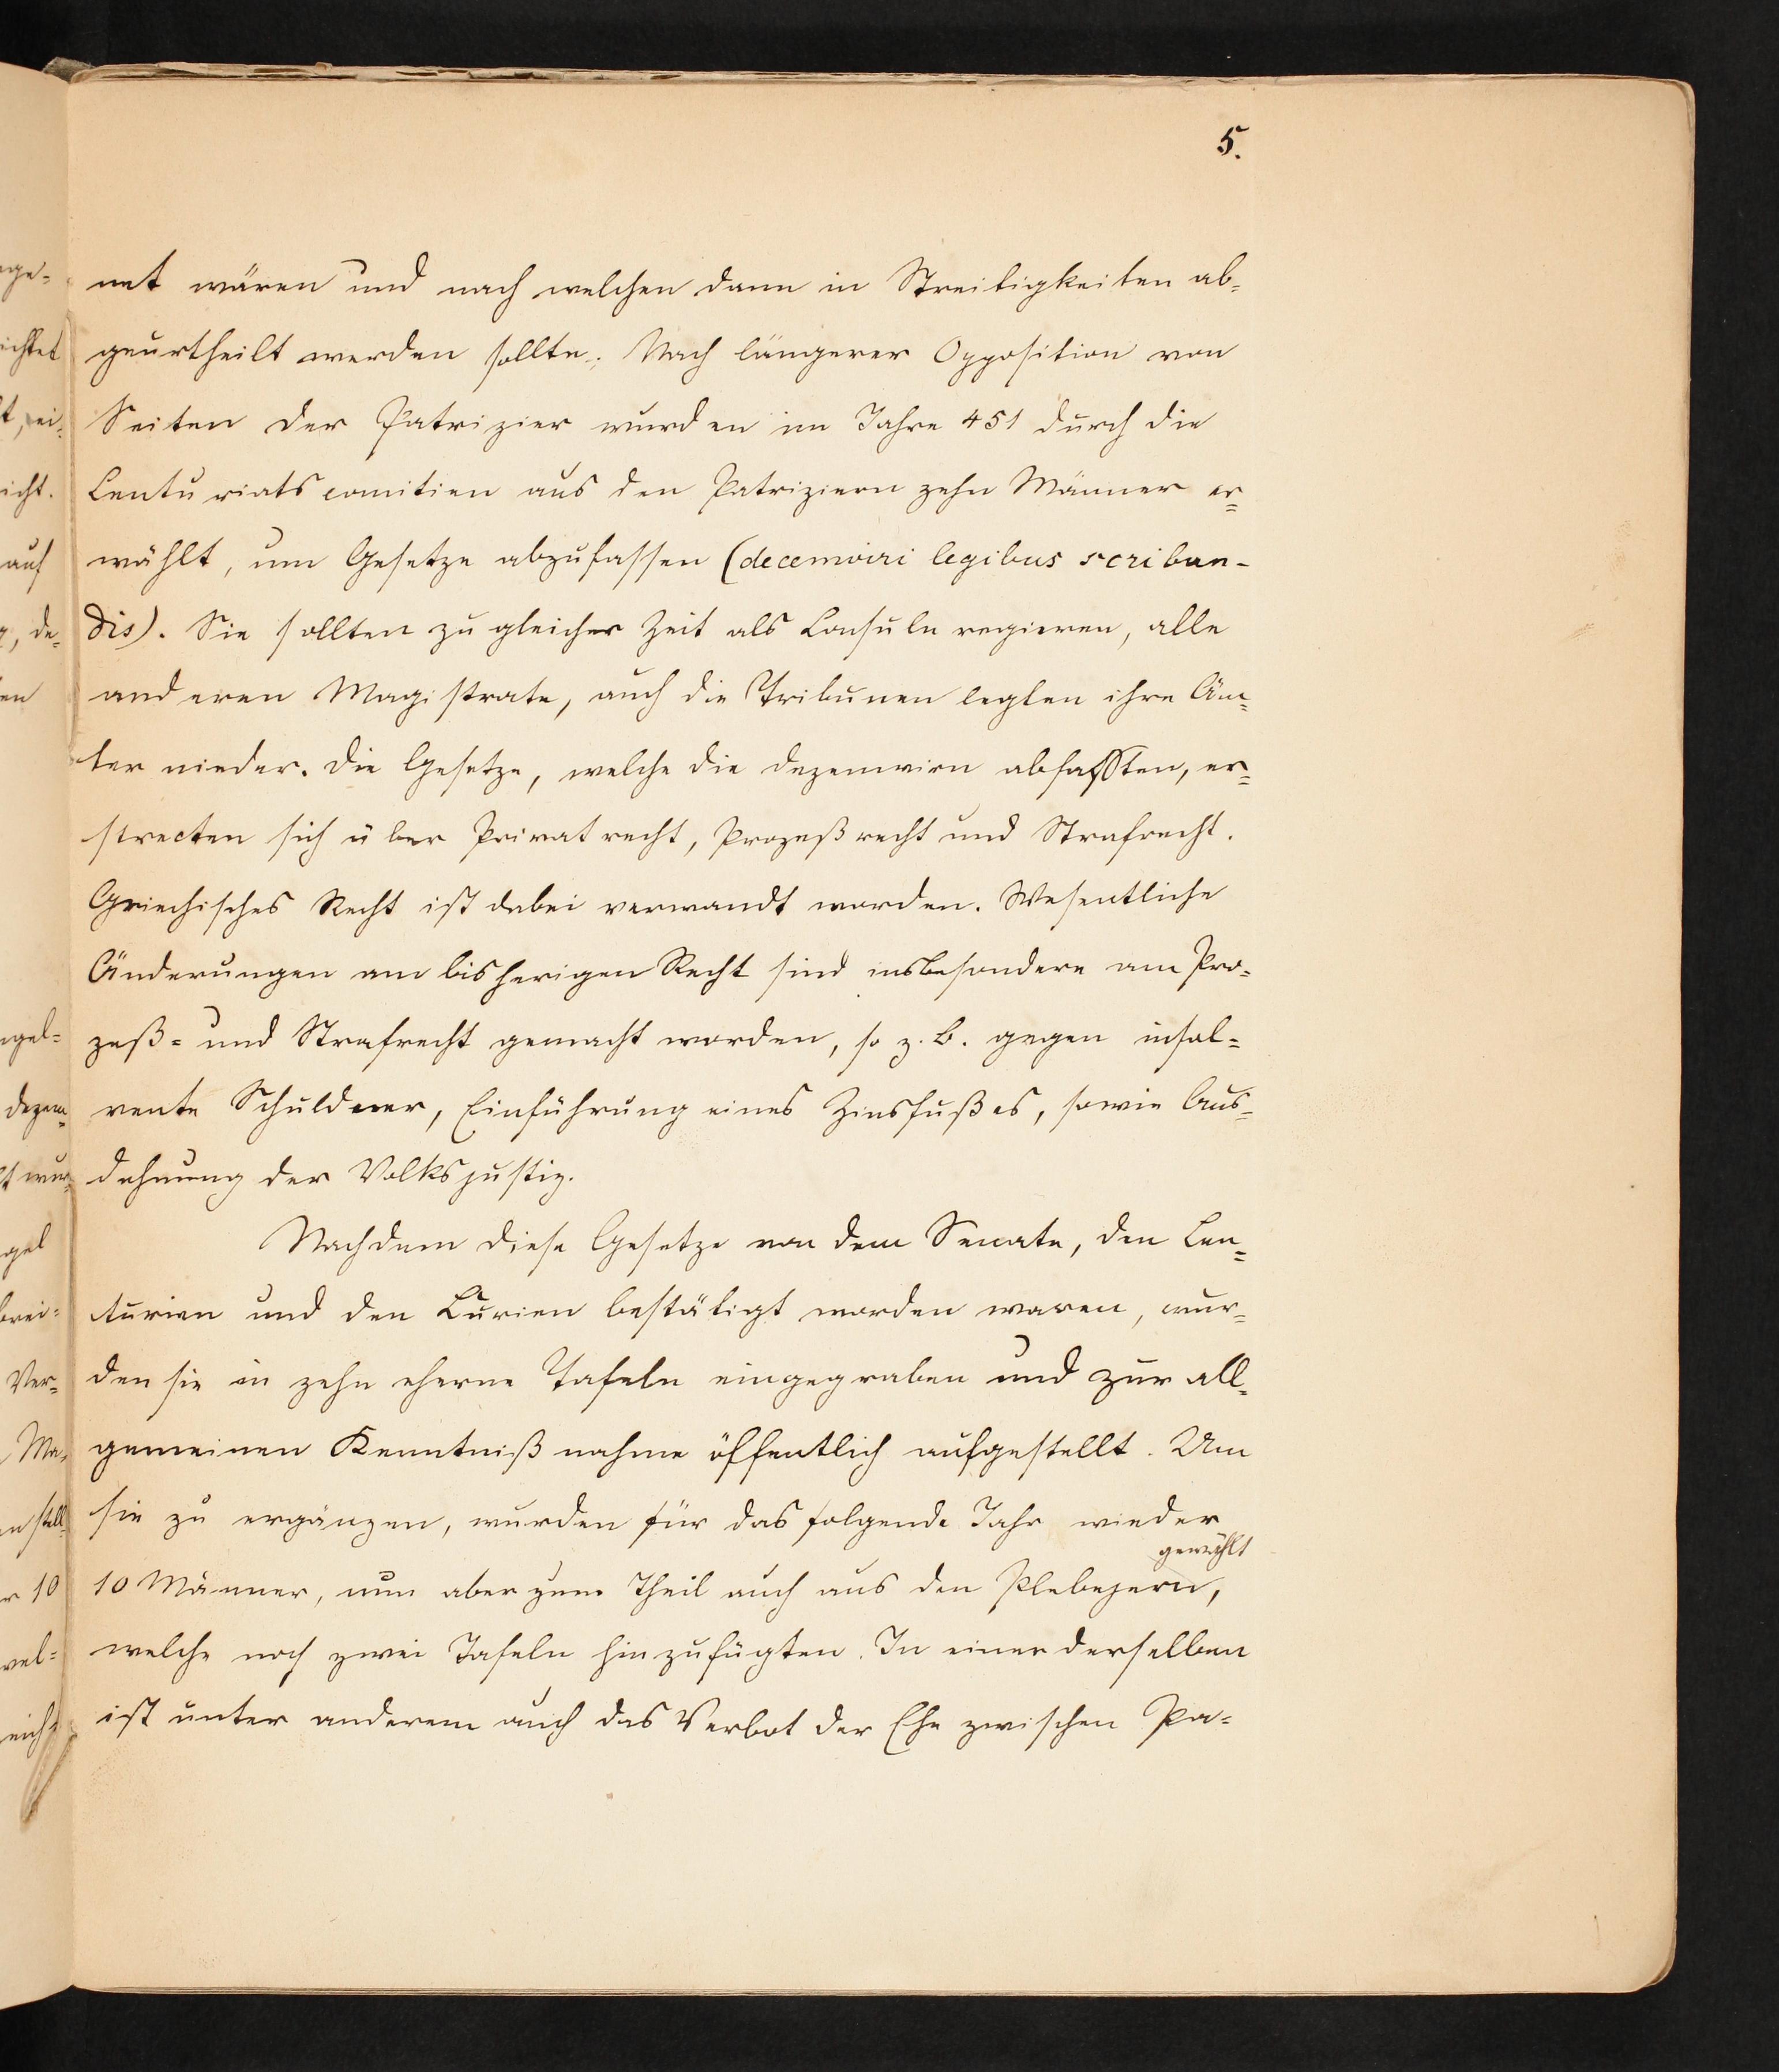 5.
net wären und nach welchen dann in Streitigkeiten ab=
geurtheilt werden sollte. Nach längerer Opposition von
Seiten der Patrizier wurden im Jahre 451 durch die
Centuriatscomitien aus den Patriziern zehn Männer er=
wählt, um Gesetze abzufassen (decemviri legibus scribun-
dis). Sie sollten zu gleicher Zeit als Consuln regieren, alle
anderen Magistrate, auch die Tribunen legten ihre Äm=
ter nieder. Die Gesetze, welche die Dezemvirn abfaßten, er=
strecten sich über Privatrecht, Prozeßrecht und Strafrecht.
Griechisches Recht ist dabei verwandt worden. Wesentliche
Änderungen am bisherigen Recht sind insbesondere am Pro=
zeß= und Strafrecht gemacht worden, so z. B. gegen insol=
vente Schuldner, Einführung eines Zinsfußes, sowie Aus=
dehnung der Volksjustiz.
Nachdem diese Gesetze von dem Senate, den Cen=
turien und den Curien bestätigt worden waren, wur=
den sie in zehn eherne Tafeln eingegraben und zur all=
gemeinen Kenntnißnahme öffentlich aufgestellt. Um
sie zu ergänzen, wurden für das folgende Jahr wieder
gewählt
10 Männer, nun aber zum Theil auch aus den Plebejern,
welche noch zwei Tafeln hinzufügten. In einer derselben
ist unter anderem auch das Verbot der Ehe zwischen Pa=